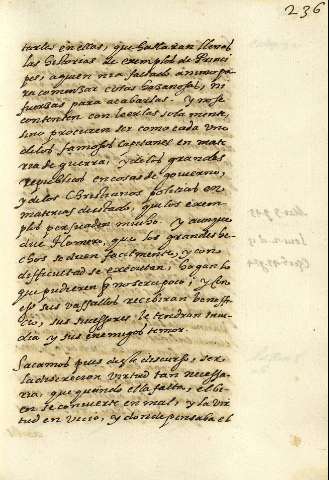 236
tarles en ellas, que hallaran llenas
las Historias de exemplos de Princi
pes, a quien no a faltado animo pa
ra comenzar estas hazañosas, ni
fuerzas para acabarlas. Y no se
contenten con leerlas sola mente,
sino procuren ser como cada uno
de los famosos capitanes en mate
ria de guerra; y de los grandes
republicos en cosas de gouierno,
y de los Christianos politicos en
materias de estado, que los exem
plos persuaden mucho. Y aunque
dice Homero, que los grandes he
chos se dicen facilmente, y con
difficultad se executan, hagan lo
que pudieren q̃ no sera poco; y con
esso sus vassallos recibiran benefi
cio, sus successores le tendran inui
dia y sus enemigos temor.
Sacamos pues deste discurso, ser
la discrecion virtud tan necessa
ria, que quando ella falta, el bi
en se conuierte en mal, y la vir
tud en vicio, y donde pensaba el